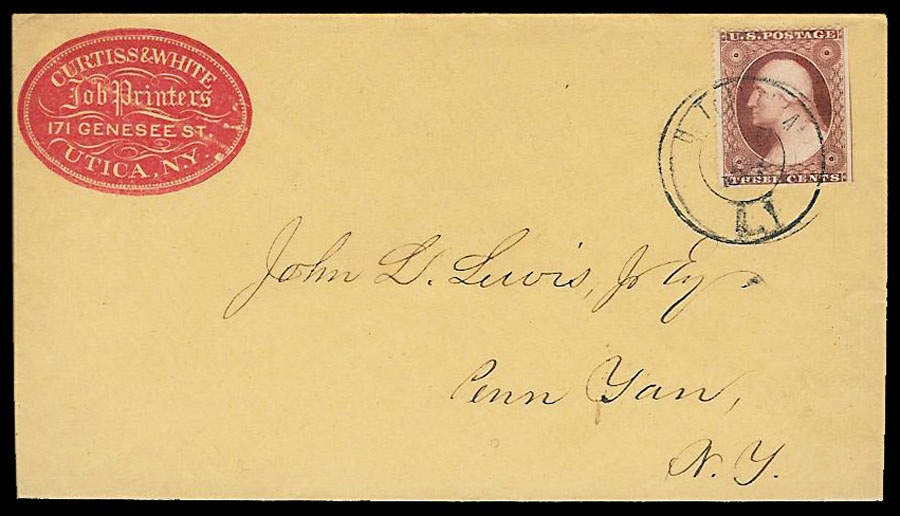 CURTISS & WHITE
Job Printers
171 GENESEE ST.
UTICA, N.Y.
U.S. POSTAGE
THREE CENTS
John L. Lewis, Jr Esq
Penn Yan,
N. Y.